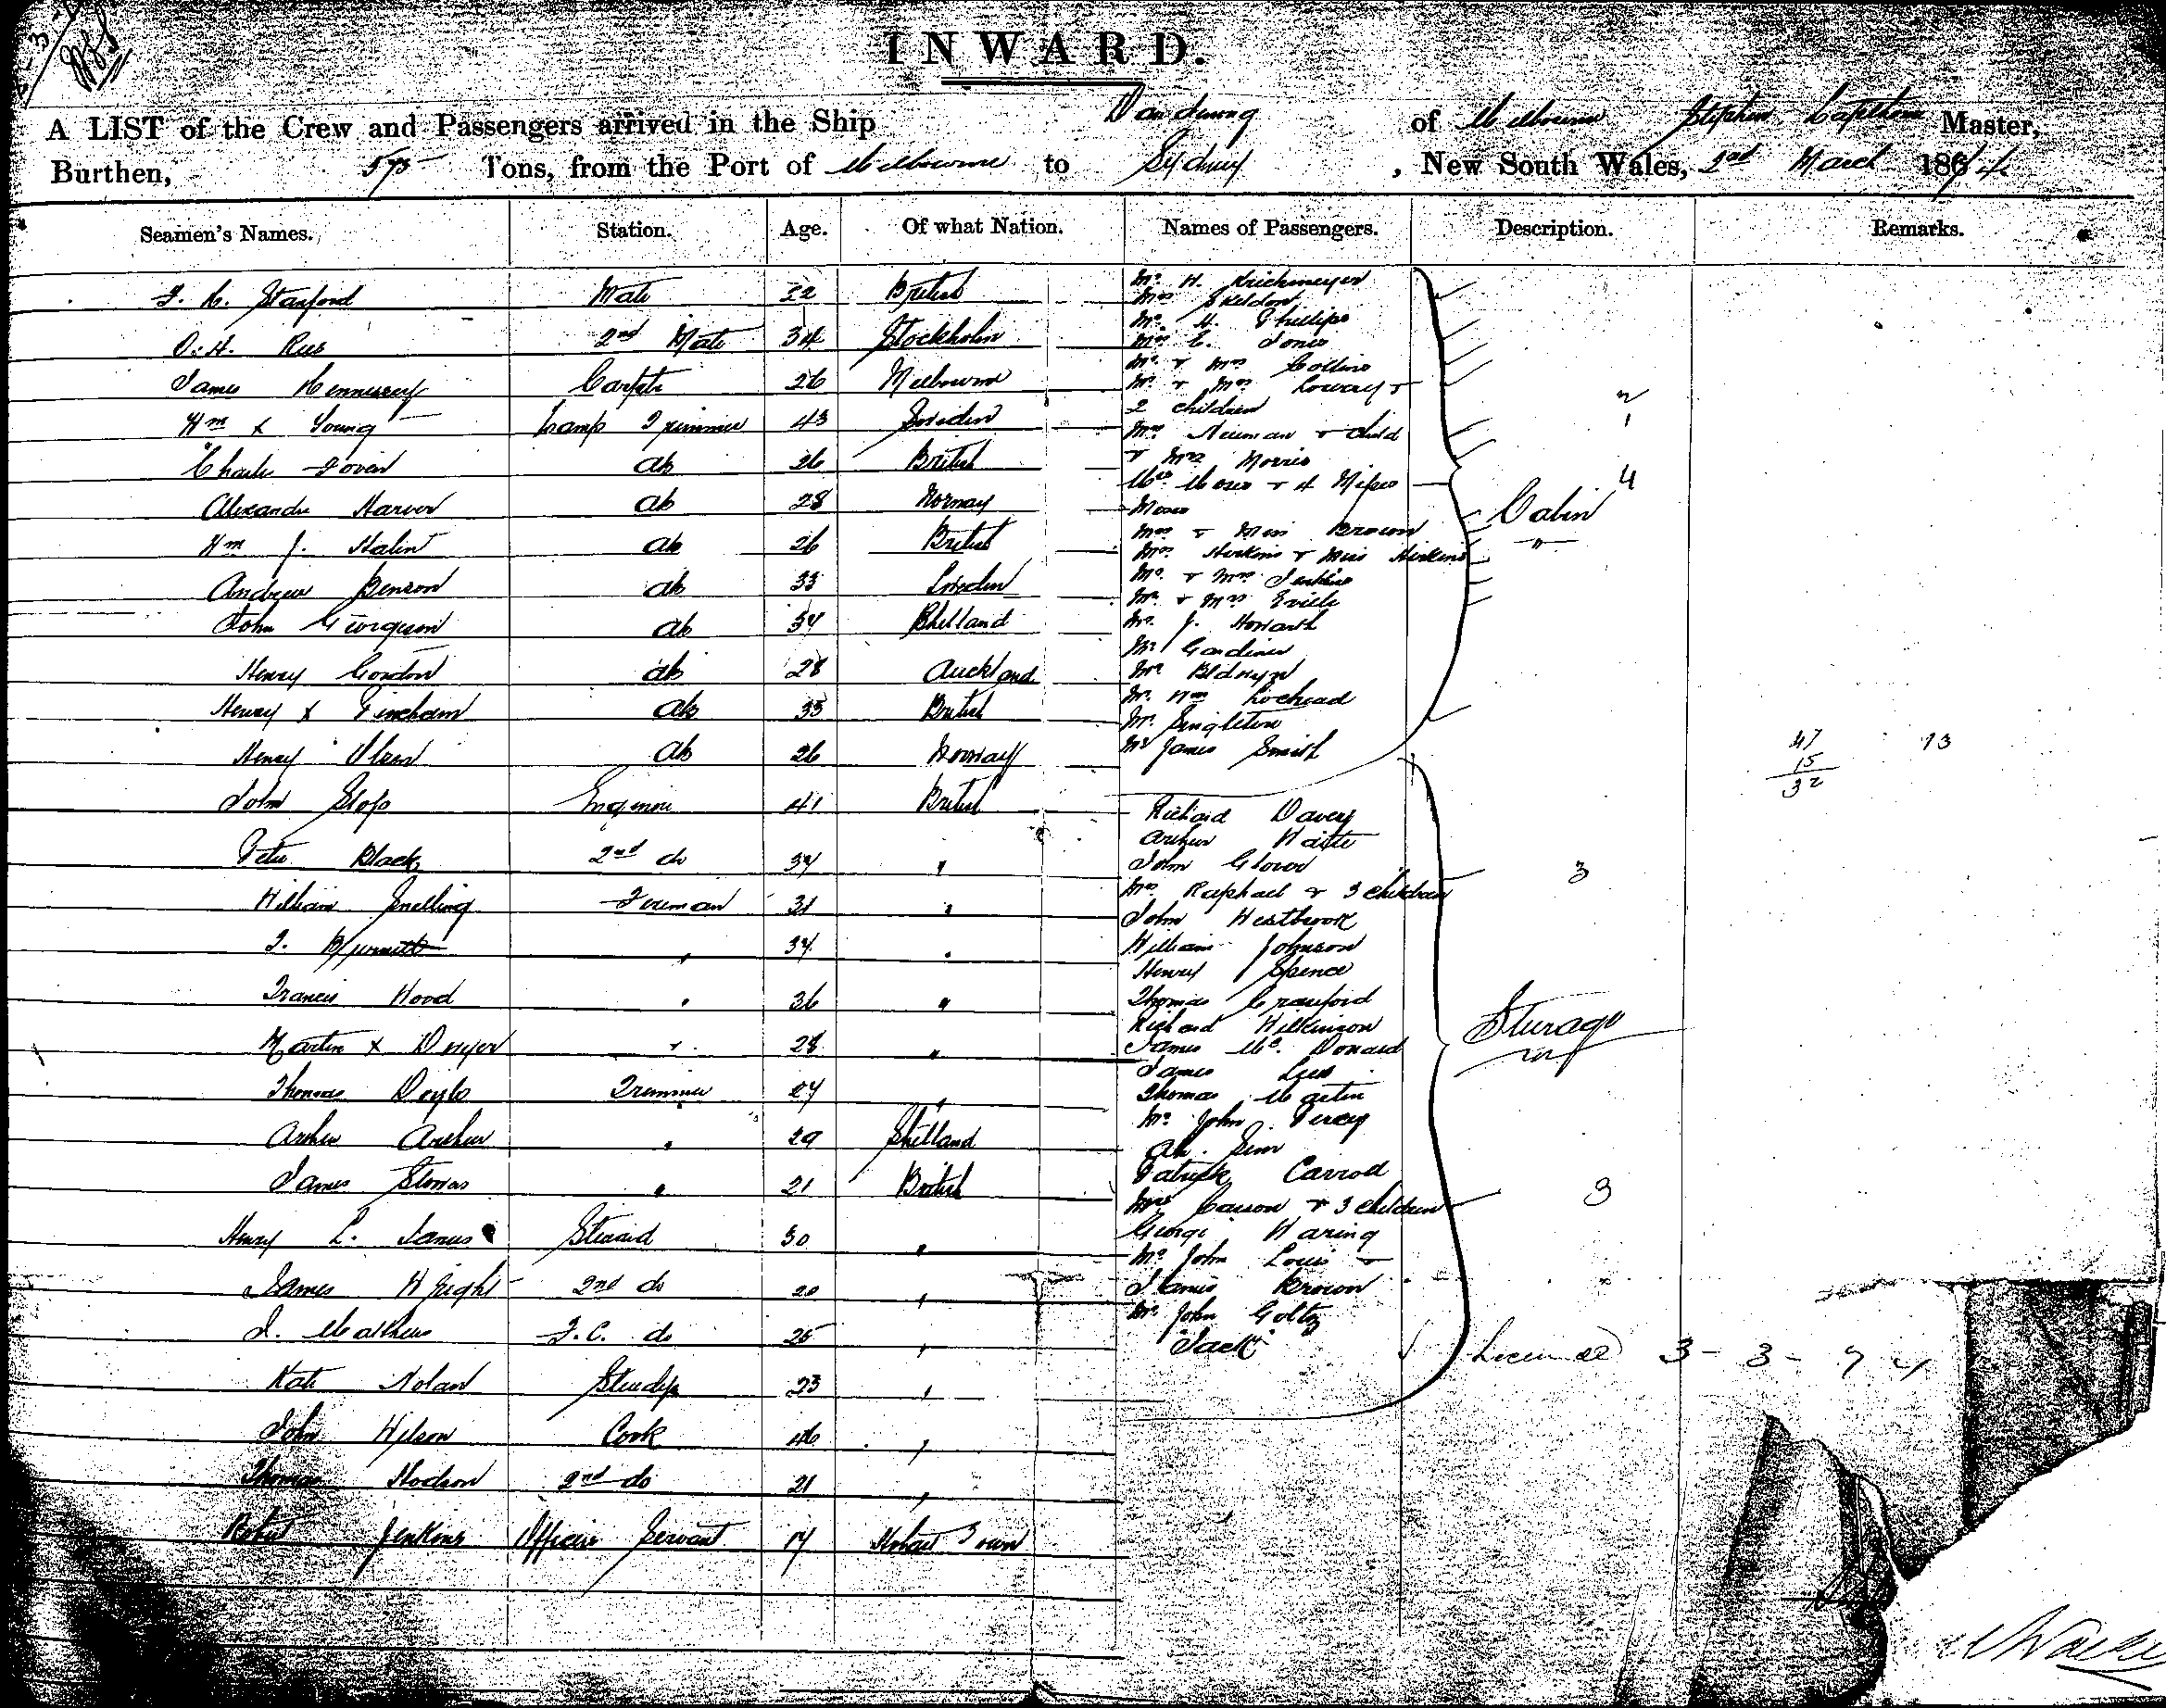 INWARD.
A LIST of the Crew and Passengers arrived in the Ship Dandenong of Melbourne Stephen Master,
Burthen, 575 Tons, from the Port of Melbourne to Sydney, New South Wales, 2nd March 1874
Seamen's Names. Station. Age. Of what Nation. Names of Passengers. Description. Remarks.
Stanford Mate 22 British
O. H. 2nd Mate 34 Stockholm
James Hennessey 26 Melbourne
Wm x Young Lamp Trimmer 43 Sweden
Charles ab 26 British
Alexander ab 28 Norway
Wm J. ab 26 British
Andrew Benson ab 33 Sweden
John ab 34 Shetland
Henry Gordon ab 28 Auckland
Henry x Fincham ab 33 British
Henry Olsen ab 26 Norway
John 41 British
Peter Black 2nd do 34 "
William Snelling Fireman 31 "
34 "
Francis Wood " 36 "
Martin x Dwyer " 28 "
Thomas Doyle Trimmer 27 "
Arthur Arthur " 29 Shetland
James " 21 British
Henry L. James Steward 30 "
James Wright 2nd do 20 "
J. Mathews F.C. do 25 "
Kate Nolan Stewdss 23 "
John Wilson Cook 46 "
Thomas Hodson 2nd do 21 "
Robert Jenkins Officers Servant 17 Hobart Town
Mr. H. Krichmeyer
Mrs Skeldon
Mr. H. Phillips
Mrs E. Jones
Mr. & Mrs Collins
Mr. & Mrs Lowrey &
2 children 2
Mrs Newman & child 1
& Mrs Morris
Mrs Moses & 4 Misses 4
Moses
Mrs & Miss Brown
Mrs Hoskins & Miss Hoskins
Mr. & Mrs Jenkins
Mr. & Mrs Eville
Mr. J. Howarth
Mr Gardiner
Mr
Mr. Wm Lochead
Mr. Singleton
Mr James Smith
Cabin
"
47 93
15
32
Richard Davey
Arthur Waite
John Glover
Mrs. Raphael & 3 children 3
John Westbrook
William Johnson
Henry Spence
Thomas Crawford
Richard Wilkinson
James Mc. Donald
James Lees
Thomas Martin
Mr. John Percy
Ah Sim
Patrick Carroll
Mrs Carson & 3 children 3
George Waring
Mr. John Louis
James Brown
Mr. John Goltz
"Jack"
Steerage
3 - 3 - 74